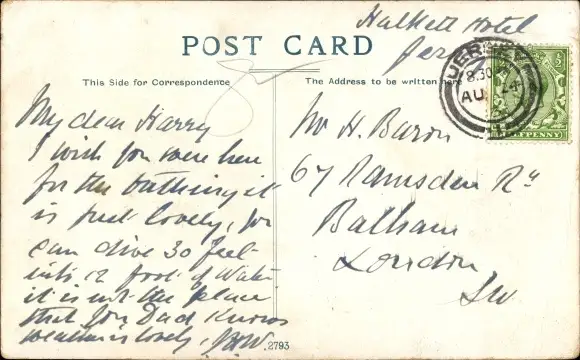 Halkett Hotel
Jersey
POST CARD
This Side for Correspondence
The Address to be written here
JERSEY
8.30
AU 24
HALFPENNY
My dear Harry
I wish you were here
for the bathing it
is just lovely, you
can dive 30 feet
into 12 foot of water
it is not the place
that your Dad knows
weather is lovely,
Mr H. Baron
67 Ramsden Rd
Balham
London
SW
2793